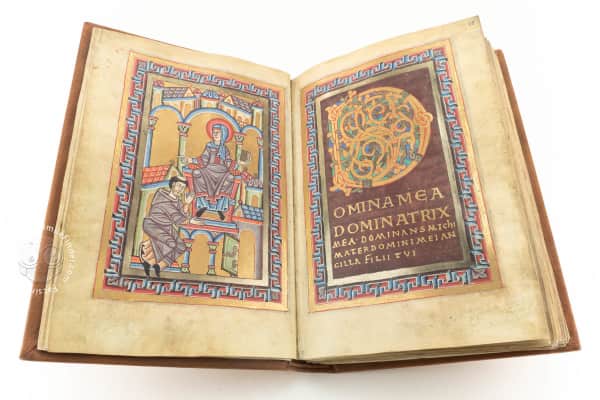 D
OMINA MEA
DOMINATRIX
MEA·DOMINANS MICHI
MATER DOMINI MEI AN
CILLA FILII TUI